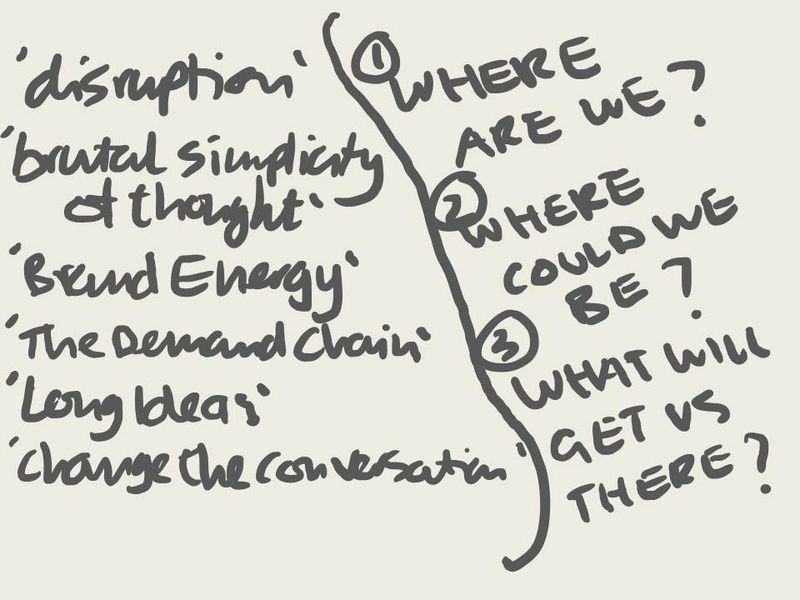 'disruption'
'brutal simplicity
of thought'
'Brand Energy'
'The Demand Chain'
'Long Ideas'
'Change the conversation'
1 WHERE
ARE WE?
2 WHERE
COULD WE
BE?
3 WHAT WILL
GET US
THERE?